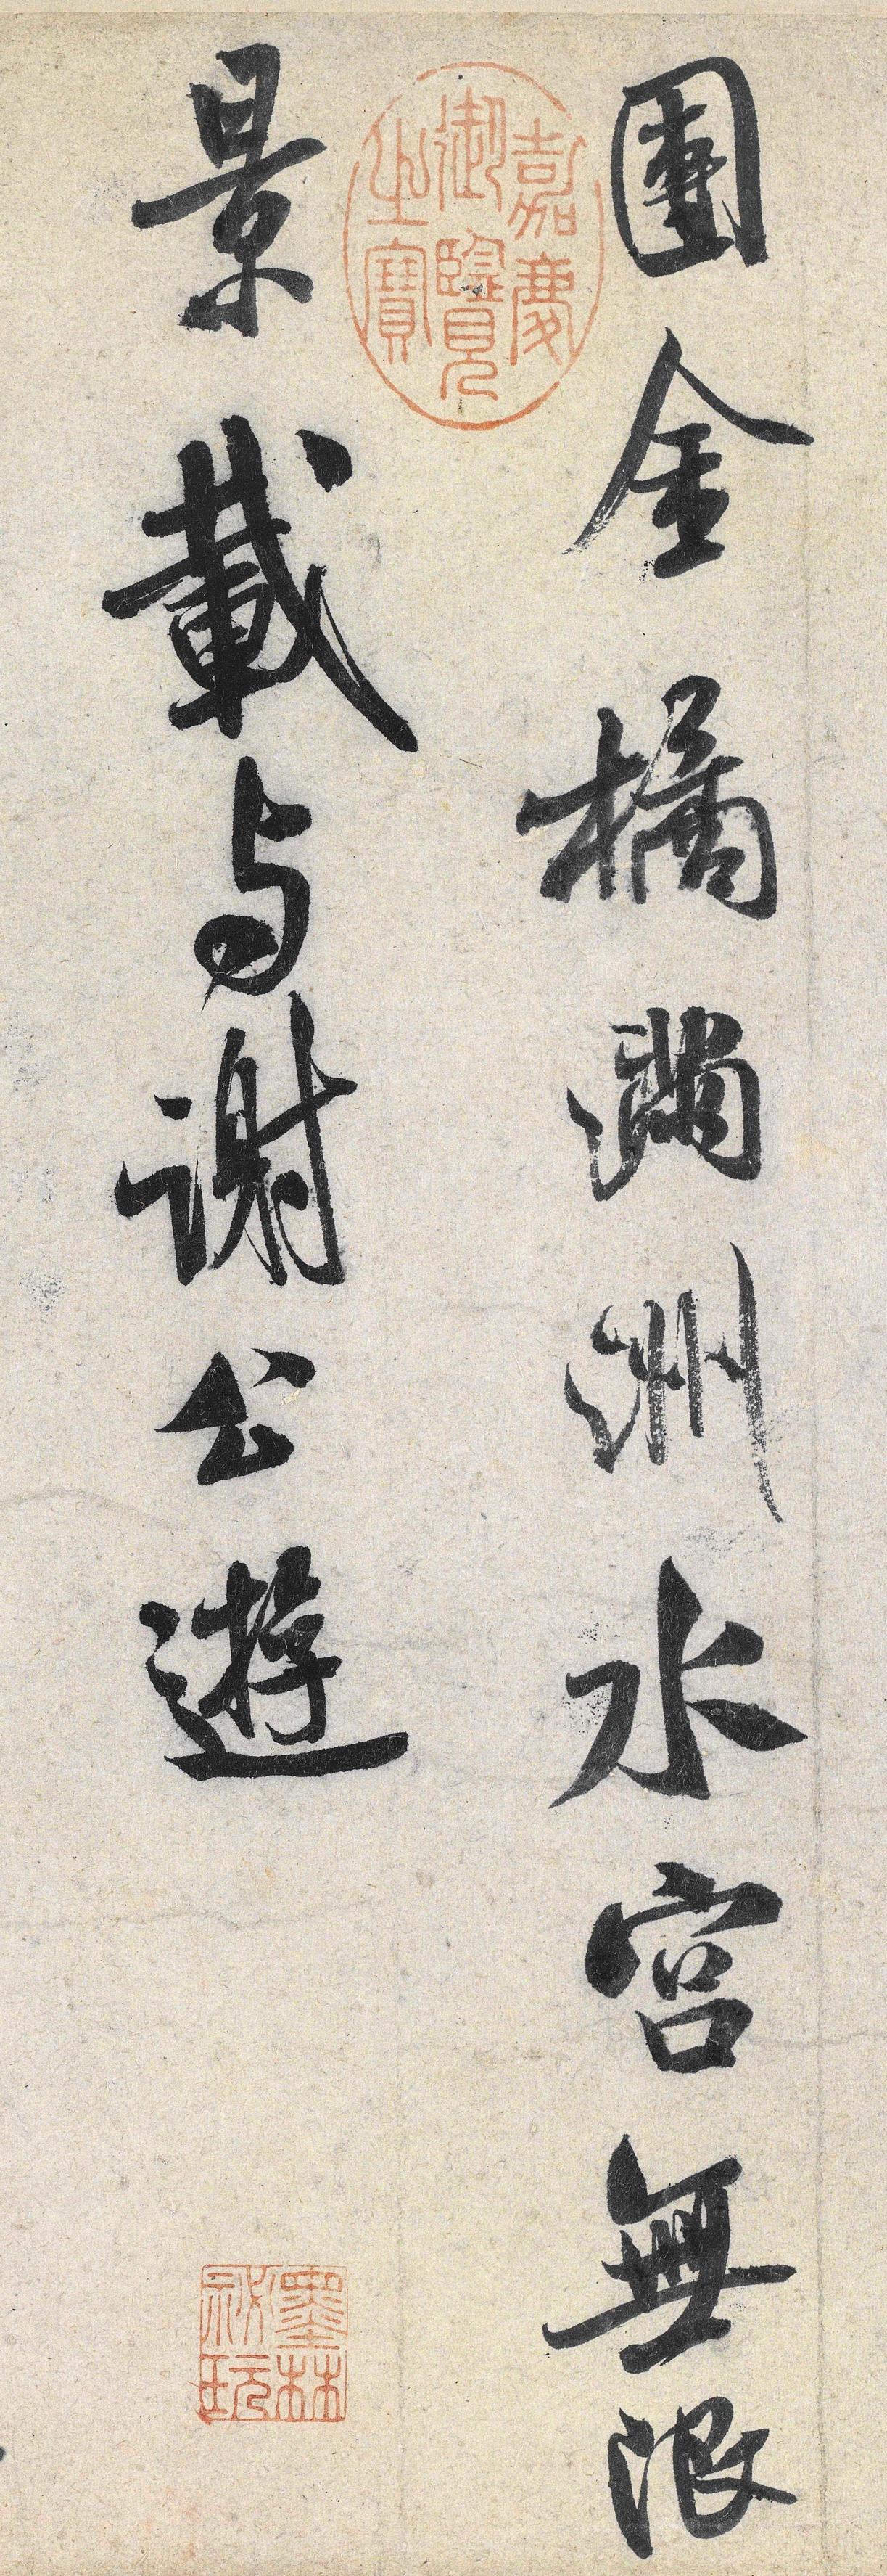 團金橘滿洲水宮無限
景載与謝公遊
嘉慶
御覽
之寶
墨林
祕玩